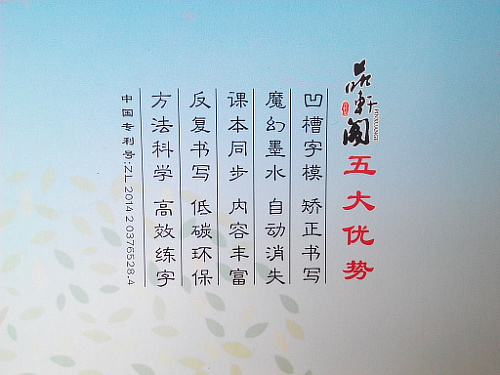 品轩阁 五大优势
PINXUANGE
凹槽字模 矫正书写
魔幻墨水 自动消失
课本同步 内容丰富
反复书写 低碳环保
方法科学 高效练字
中国专利号:ZL 2014 2 0376528.4